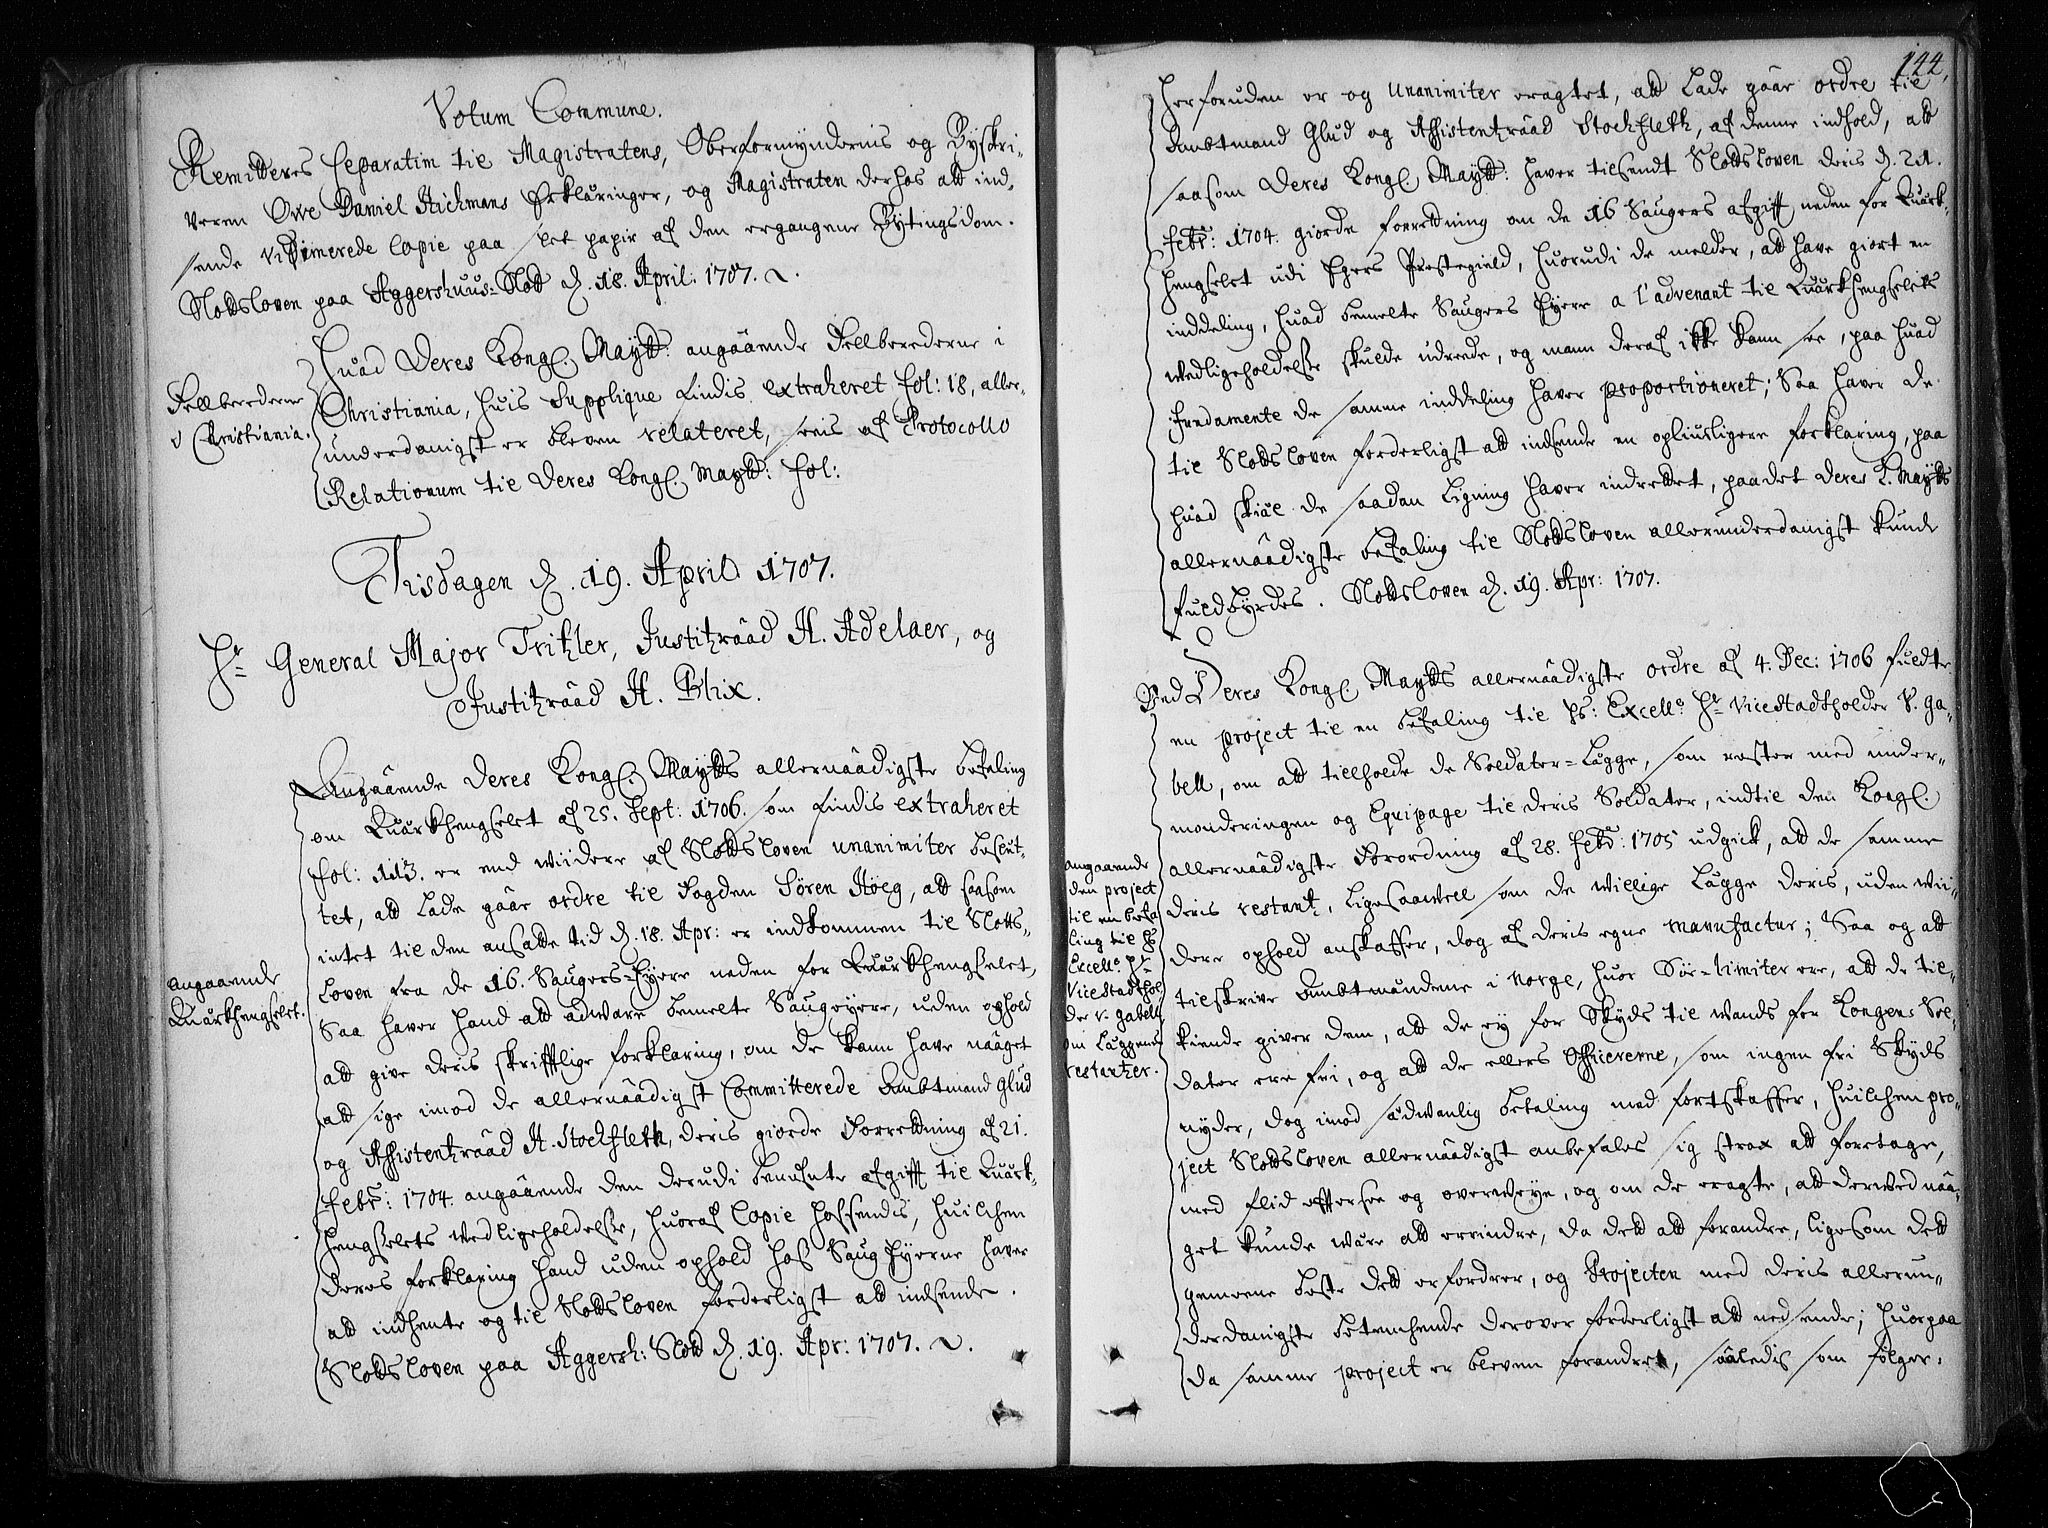 Votum Commune.
Remitteres Separatim til Magistratens, Oberformyndernis og Byskri-
veren Ove Daniel Hichmans Erklæringer, og Magistraten derhos att ind-
sende vidimerede Copie paa slet papir af den ergangene Bytingsdom.
Slodsloven paa Aggershuus-Slod d. 18. April: 1707.
Huad Deres Kongl. Maytt: angaaende Fellberederne i
Christiania, huis Supplique findis extraheret fol: 18, aller-
underdanigst er bleven relateret, sees af Protocollo
Relationum til Deres Kongl. Maytt: fol:
Fellberederne
i Christiania.
Tisdagen d. 19. April 1707.
Hr. General Major Tritzler, Justitzraad H. Adelaer, og
Justitzraad H. Blix.
Angaaende Deres Kongl. Maytts allernaadigste befaling
om Quærkhengselet af 25. Sept: 1706. som findis extraheret
fol: 113. er end viidere af Slodsloven unanimiter besluttet,
tet, att lade gaae ordre til Fogden Søren Høeg, att saasom
intet til den ansatte tid d. 18. Apr: er indkommen til Slots-
loven fra de 16. Saugers-Eyere neden for Quærkhengselet,
Saa haver hand att advare bemelte Saugeyere, uden ophold
att give deris skrifftlige forklaring, om de kann have naaget
att sige imod de allernaadigst Committerede Ambtmand Glud
og Assistentzraad H. Stockfleth, deris giorde Forrettning af 21.
Febr: 1704. angaaende den derudi benefnte afgifft til Quærk-
hengselets vedligeholdelse, huoraf Copie hossendis, huilchen
deres forklaring hand uden ophold hos Saug Eyerne haver
att indhente og til Slodsloven forderligst att indsende.
Slodsloven paa Aggersh: Slod d. 19. Apr: 1707.
angaaende
Quærkhengselet.
144.
Herforuden er og unanimiter eragtet, att lade gaae ordre til
Ambtmand Glud og Assistentzraad Stockfleth, af denne indhold, att
saasom Deres Kongl. Maytt: haver tilsendt Slodsloven deris d. 21.
Febr: 1704. giorde forrettning om de 16 Saugers afgifft neden for Quærk-
hengselet udi Egers Prestegield, huorudi de melder, att have giort en
inddeling, huad bemelte Saugers Eyere a l'advenant til Quærkhengselets
vedligeholdelse skulde udrede, og mann deraf ikke kann see, paa huad
Fundamente de samme inddeling haver proportioneret; Saa haver de
til Slodsloven forderligst att indsende en opliusligere forklaring, paa
huad skiæl de saadan ligning haver indrettet, paa det Deres K. Maytts
allernaadigste befaling til Slodsloven allerunderdanigst kunde
fuldbyrdes. Slodsloven d. 19. Apr: 1707.
Ved Deres Kongl. Maytts allernaadigste ordre af 4. Dec: 1706 fuldte
en project til en befaling til Hs: Excell: Hr. Vice Stadtholder V. Ga-
bell, om att tilholde de Soldater-Lægge, som rester med under-
monderingen og Equipage til deris Soldater, indtil den Kongl.
allernaadigste Forordning af 28. Febr: 1705 udgick, att de samme
deris restantz, ligesaavel som de villige Lægge deris, uden vii-
dere ophold anskaffer, dog af deris egne manufactur; Saa og att
tilskrive Ambtmændene i Norge, huor Sør-limiter ere, att de til-
kiende giver dem, att de ey for Skyds til vands for Kongens Sol-
dater ere fri, og att de ellers Officererne, som ingen fri Skyds
nyder, dog imod sædvanlig betaling med fortskaffer, huilchen pro-
ject Slodsloven allernaadigst anbefales sig strax att foretage,
med flid effterse og overveye, og om de eragte, att derved naa-
get kunde være att erindre, da dett att forandre, ligesom dett
gemeene beste dett erfordrer, og Projecten med deris allerun-
derdanigste betenchende derover forderligst att nedsende; huorpaa
da samme project er bleven forandret, saaledis som følger:
angaaende
den project
til en befa-
ling til Hs
Excell: Hr
Vice Stadthol
der v. Gabell
om Læggenes
restantzer.